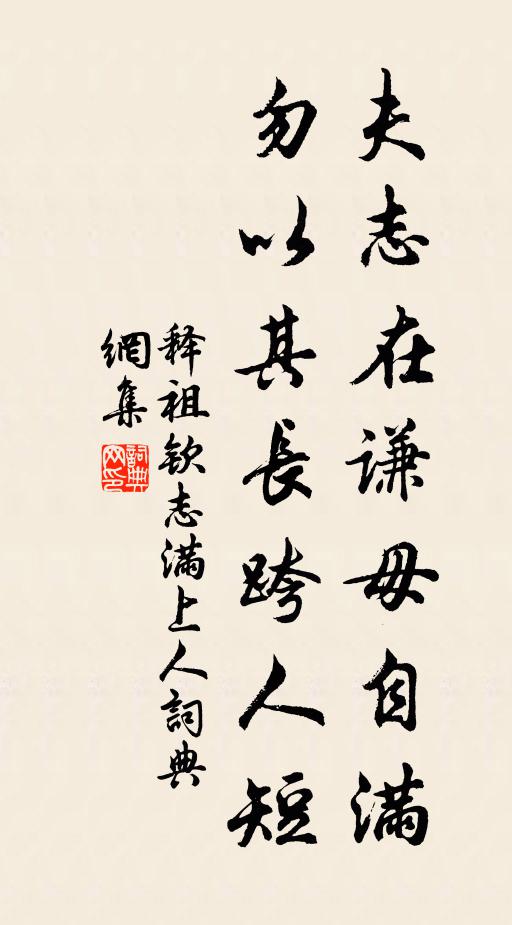 夫志在谦毋自滿
勿以其長跨人短
释祖钦志滿上人詞典
網集
詞典
网印